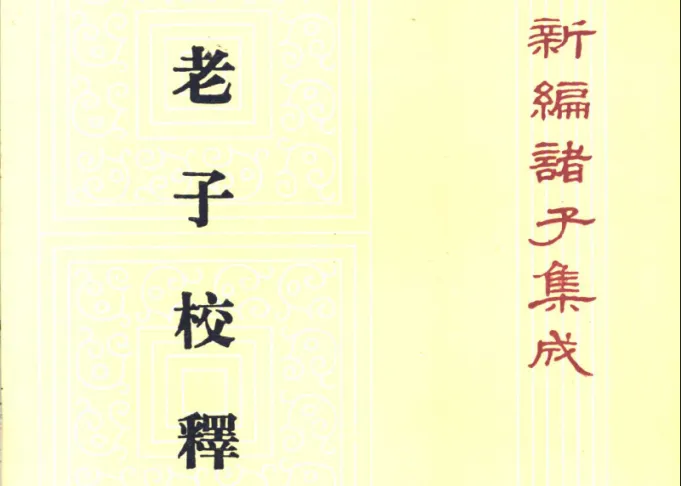 新編諸子集成
老子校釋